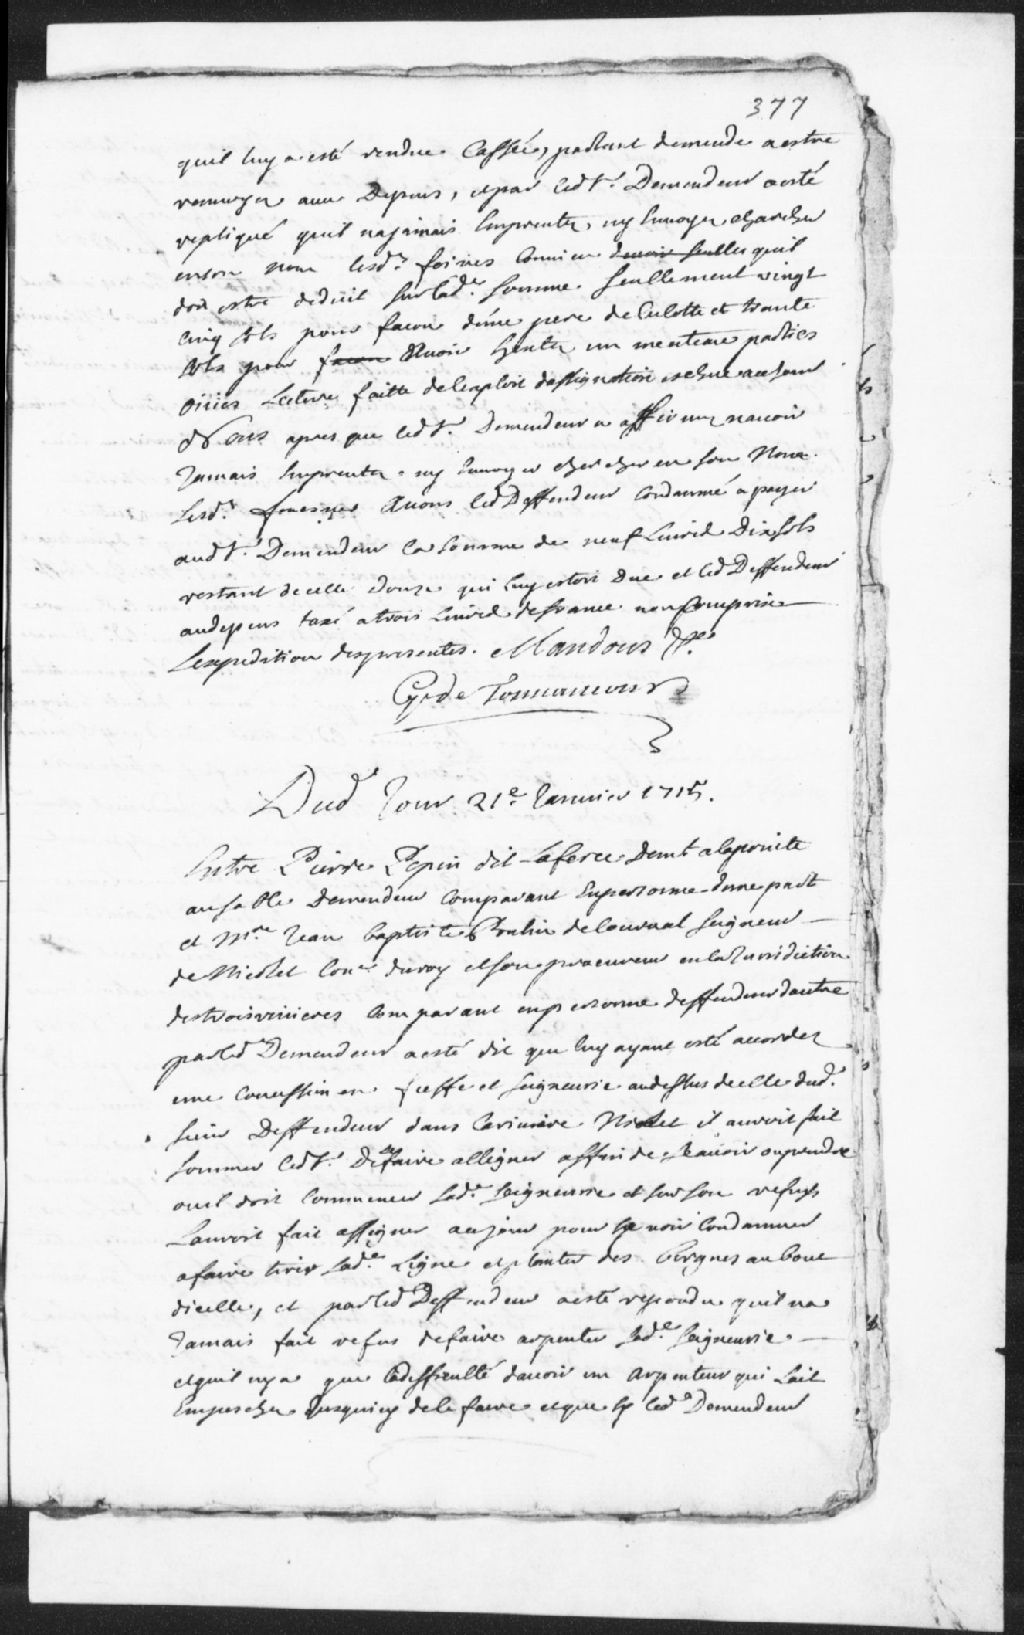 377
quil luy a esté rendue Cassée, partant demende a estre
renvoyer avec Depens, et par led. Sr. Demendeur a esté
repliqué quil na jamais Emprenter, ny Envoyer chercher
en son nom lesd. foines Comm en devoir seulles quil
doit estre deduit sur lad.e somme Seullement vingt
Cinq sols pour facon dúne pere de Culotte et trante
sols pour facon Avoir Henter un menteau parties
oüies Lecture faitte de lexploit dassignation eschue ace jour
Nous apres que led. Sr. Demendeur a affirmer navoir
Jamais Emprenter ny Envoyer chercher en son Nom
Lesd. fouesnes Avons led Deffendeur Condamné a payer
aud Sr. Demendeur La Somme de neuf Livres Dix sols
restant de celle douze qui luy estoit Due et led Deffendeur
aux depens taxé a trois Livres de france non Comprise
Lexpedition des presentes. Mandons &c.
G de Tonnancour
Dud Jour 21e. Janvier 1715.
Entre Pierre Pepin dit Laforce Demt a lapointe
au sable Demendeur Comparant En personne dune part
et Mre Jean Baptiste Poulin de Courval Seigneur
de Nicolet Coner du roy et son procureur en la Jurisdiction
des trois rivieres Comparant en personne deffendeur dautre
par led Demendeur a esté dit que luy ayant esté accordez
une Concession en fieffe et Seigneurie audessus de celle dud.
Sieur Deffendeur dans la riviere Nicolet il auroit fait
sommer led Sr. De faire alligner affin de sçavoir ou prendre
ou el doit Commencer lad.e Seigneurie et sur son refus
Lauroit fait assigner ace jour pour se voir Condamner
a faire tirer lad.e Ligne et planter des Borgnes au bout
dicelle, et par led Deffendeur a esté repondu quil na
Jamais fait refus de faire arpenter lad.e Seigneurie
et quil ny a que la difficulté davoir un arpenteur qui Lait
Empescher Jusquicy de le faire et que sy led. Demendeur